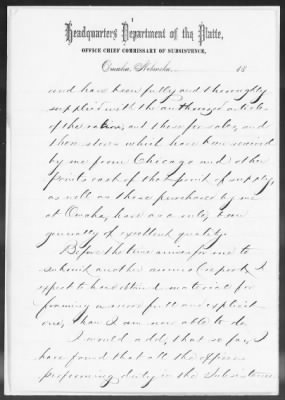 Headquarters Department of the Platte,
OFFICE CHIEF COMMISSARY OF SUBSISTENCE,
Omaha, Nebraska, 18
and have been fully and thoroughly
supplied with the authorized articles
of the ration, and those for sales, and
these stores which have been received
by me from Chicago and other
points east of this point of supply,
as well as those purchased by me
at Omaha, have as a rule, been
generally of excellent quality.
Before the time arrives for me to
submit another annual report, I
expect to have obtained material for
framing a more full and explicit
one, than I am now able to do.
I would add, that so far, I
have found that all the officers
performing duty in the Subsistence